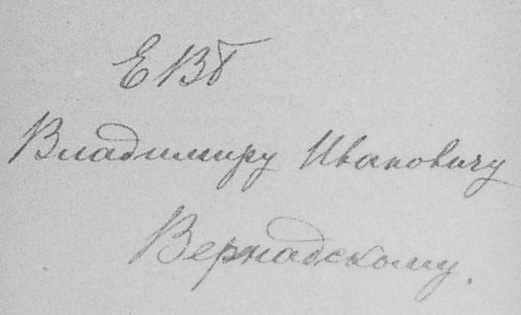 ЕВБ
Владимиру Ивановичу
Вернадскому.